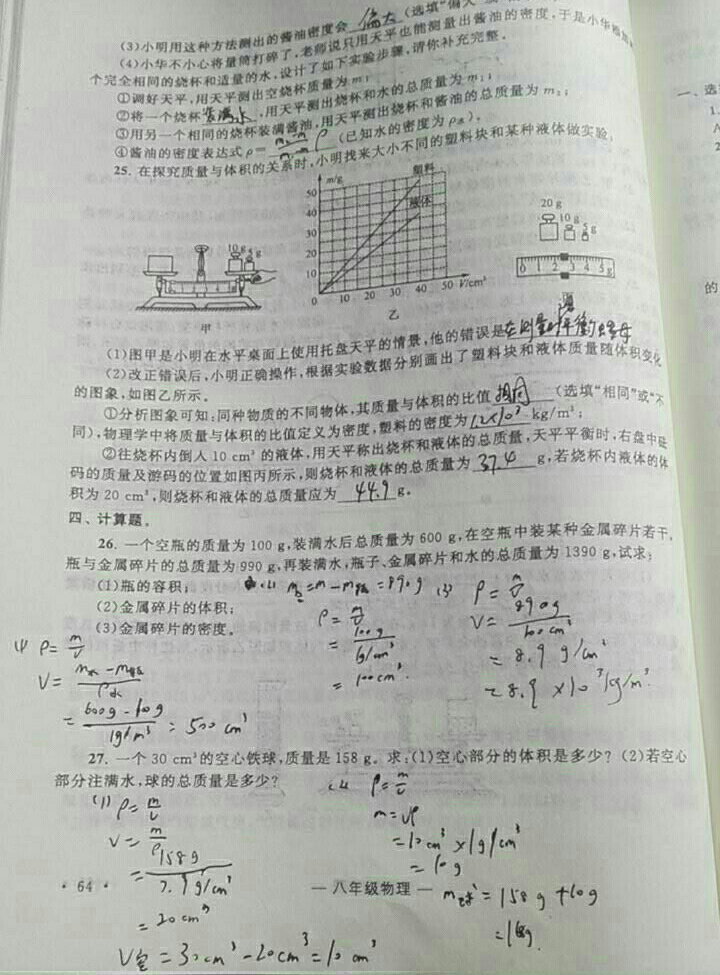 (3)小明用这种方法测出的酱油密度会 偏大 (选填"偏大"
(4)小华不小心将量筒打碎了,老师说只用天平也能测量出酱油的密度,于是小华
个完全相同的烧杯和适量的水,设计了如下实验步骤,请你补充完整。
①调好天平,用天平测出空烧杯质量为 m
②将一个烧杯 装满水 ,用天平测出烧杯和水的总质量为 m₁;
③用另一个相同的烧杯装满酱油,用天平测出烧杯和酱油的总质量为 m₂;
④酱油的密度表达式 ρ= (已知水的密度为 ρ水)。
25. 在探究质量与体积的关系时,小明找来大小不同的塑料块和某种液体做实验
m/g 塑料
液体
50
40
30
20
10
0 10 20 30 40 50 V/cm³
10 g 5 g
20 g
10 g
5 g
0 1 2 3 4 5 g
甲
乙
(1)图甲是小明在水平桌面上使用托盘天平的情景,他的错误是 在测量时 平衡螺母
(2)改正错误后,小明正确操作,根据实验数据分别画出了塑料块和液体质量随体积变化
的图象,如图乙所示。
①分析图象可知:同种物质的不同物体,其质量与体积的比值 相同 (选填"相同"或"不
同),物理学中将质量与体积的比值定义为密度,塑料的密度为 1.2×10³ kg/m³;
②往烧杯内倒人 10 cm³ 的液体,用天平称出烧杯和液体的总质量,天平平衡时,右盘中砝
码的质量及游码的位置如图丙所示,则烧杯和液体的总质量为 37.4 g,若烧杯内液体的体
积为 20 cm³,则烧杯和液体的总质量应为 44.9 g。
四、计算题。
26. 一个空瓶的质量为 100 g,装满水后总质量为 600 g,在空瓶中装某种金属碎片若干,
瓶与金属碎片的总质量为 990 g,再装满水,瓶子、金属碎片和水的总质量为 1390 g,试求:
(1)瓶的容积;
(2)金属碎片的体积;
(3)金属碎片的密度。
= 890 g (3) ρ = m/V
ρ = m/V
V = 890 g / 100 cm³
= 100 g / 1g/cm³
= 8.9 g/cm³
= 100 cm³
= 8.9 ×10³ kg/m³
(1) ρ = m/V
V =
= 600g - 100g / = 500 cm³
27. 一个 30 cm³ 的空心铁球,质量是 158 g。求:(1)空心部分的体积是多少?(2)若空心
部分注满水,球的总质量是多少?
(1) ρ = m/V
V = m/ρ
= 158g / 7.9g/cm³
= 20 cm³
V空 = 30 cm³ - 20 cm³ = 10 cm³
(2) ρ = m/V
m = Vρ
= 10 cm³ × 1g/cm³
= 10 g
= 158 g + 10g
· 64 ·
— 八年级物理 —
一、选
1.
A
2
的